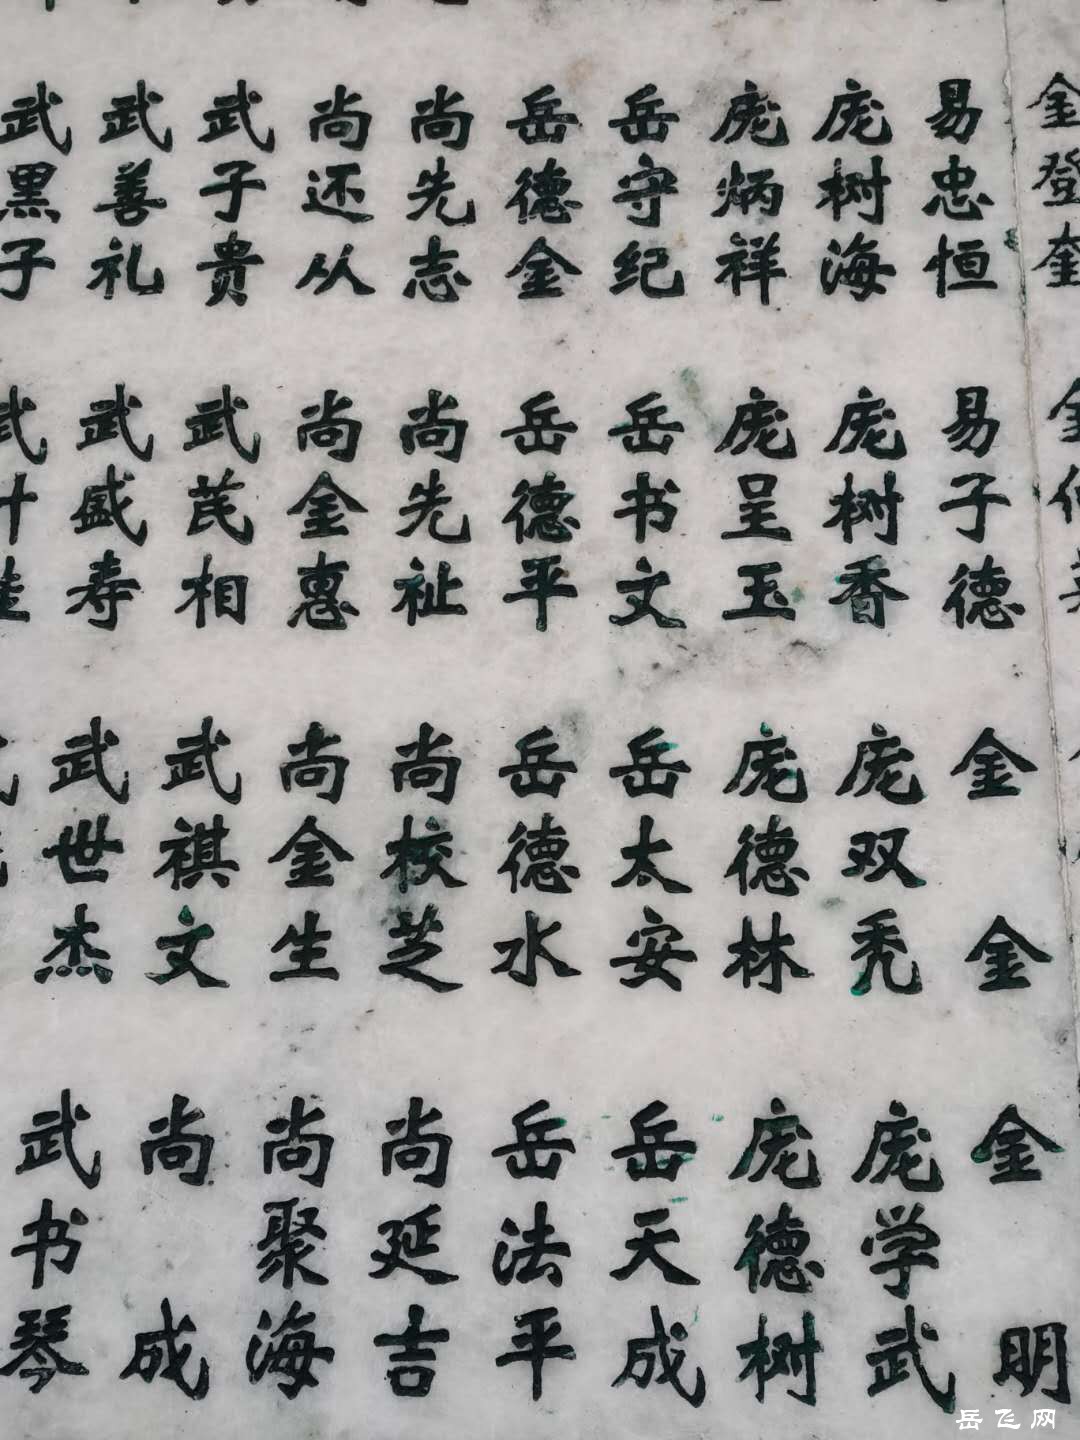 金登奎
易忠恒
易子德
金金
金明
庞树海
庞树香
庞双秃
庞学武
庞炳祥
庞呈玉
庞德林
庞德树
岳守纪
岳书文
岳太安
岳天成
岳德金
岳德平
岳德水
岳法平
尚先志
尚先祉
尚校芝
尚延吉
尚还从
尚金惠
尚金生
尚聚海
武子贵
武芪相
武祺文
尚成
武善礼
武盛寿
武世杰
武书琴
武黑子
岳飞网